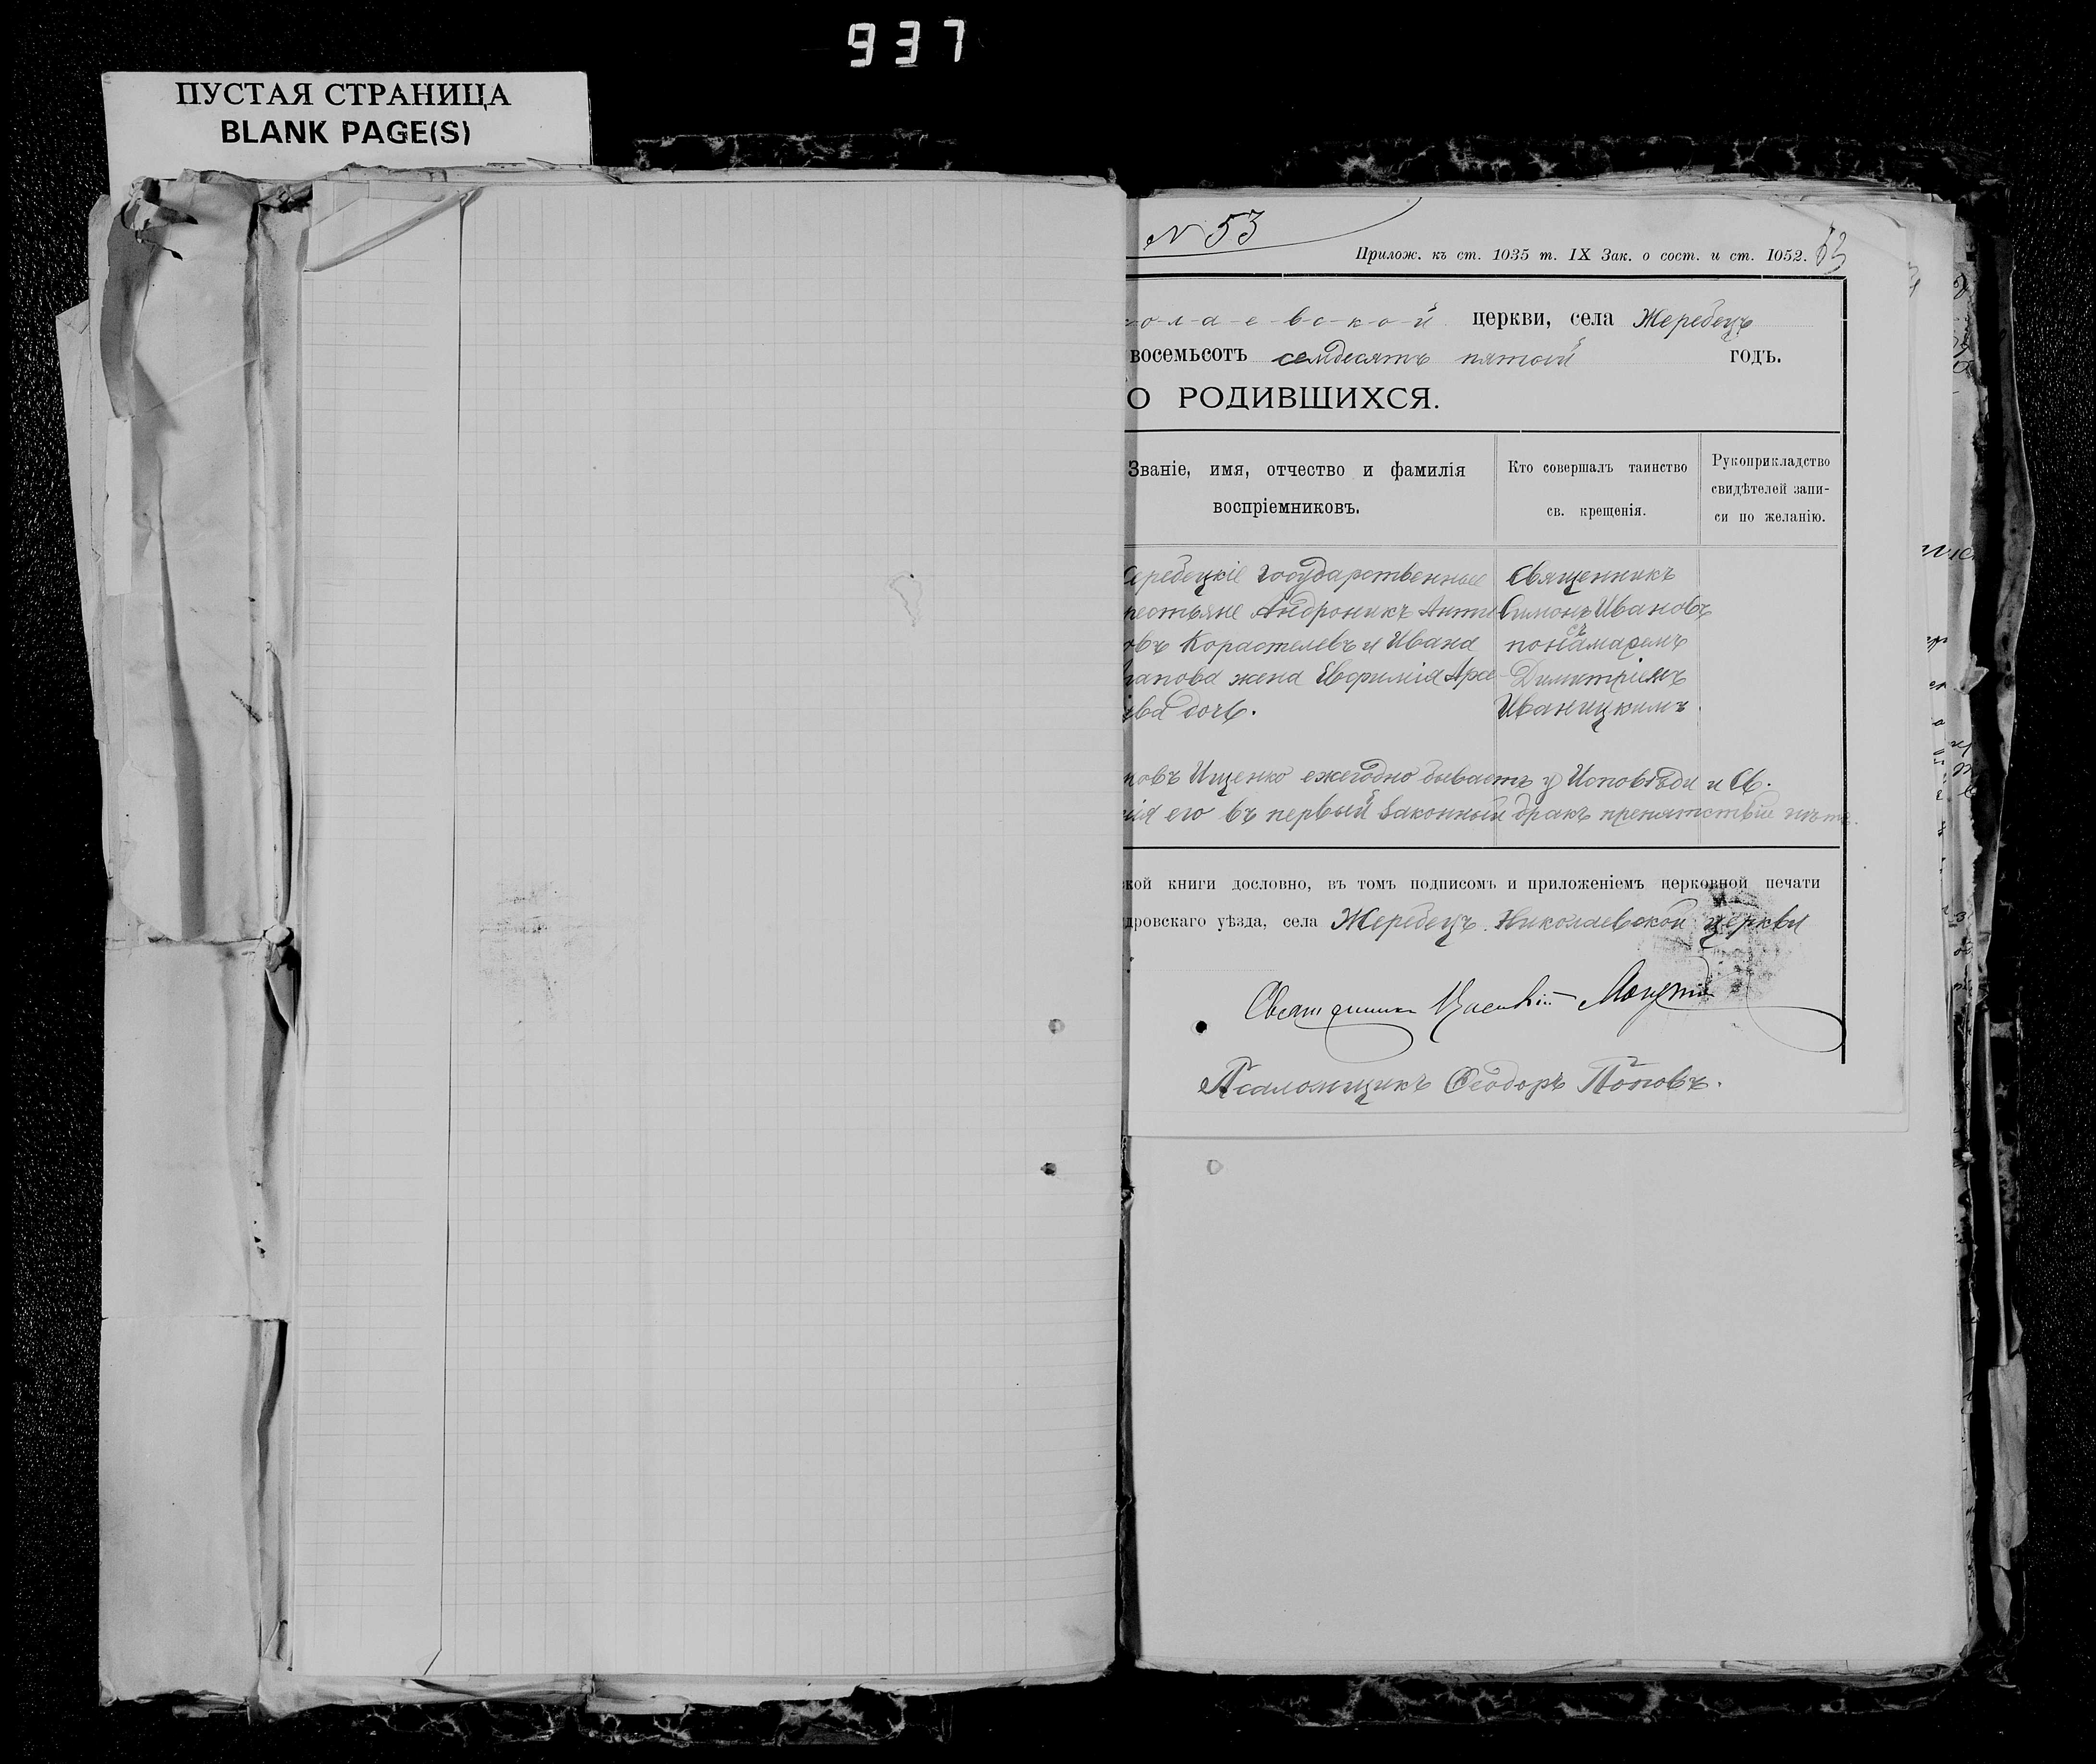 937
ПУСТАЯ СТРАНИЦА
BLANK PAGE(S)
N 53
Прилож. къ ст. 1035 т. IX Зак. о сост. и ст. 1052.
53
о-л-а-е-в-с-к-о-й церкви, села Жеребецъ
восемьсотъ семдесятъ пятый годъ.
О РОДИВШИХСЯ.
Званіе, имя, отчество и фамилія
воспріемниковъ.
Кто совершалъ таинство
св. крещенія.
Рукоприкладство
свидѣтелей запи-
си по желанію.
еребецкіе государственные
рестьяне Андроникъ Анти
овъ Корастелевъ и Ивана
жена Евфимія Арсе
ева дочь.
Священникъ
Симонъ Ивановъ
съ
понамаремъ
Димитріемъ
Иваницкимъ
новъ Ищенко ежегодно бываетъ у Исповѣди и Св.
нія его въ первый законный бракъ препятствій нѣтъ.
ской книги дословно, въ томъ подписомъ и приложеніемъ церковной печати
дровскаго уѣзда, села Жеребецъ Николаевской церкви
Священникъ
Псаломщикъ Ѳеодоръ Поповъ.